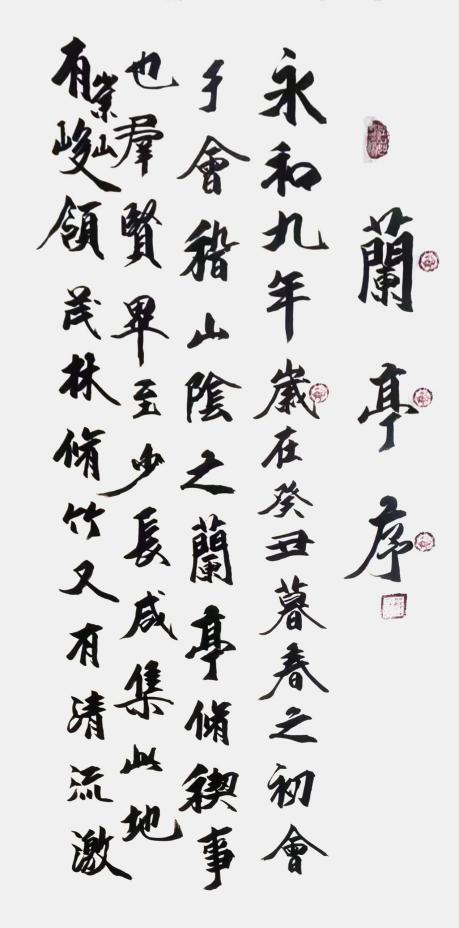 蘭亭序
永和九年歲在癸丑暮春之初會
于會稽山陰之蘭亭脩稧事
也羣賢畢至少長咸集此地
有崇山峻領茂林脩竹又有清流激